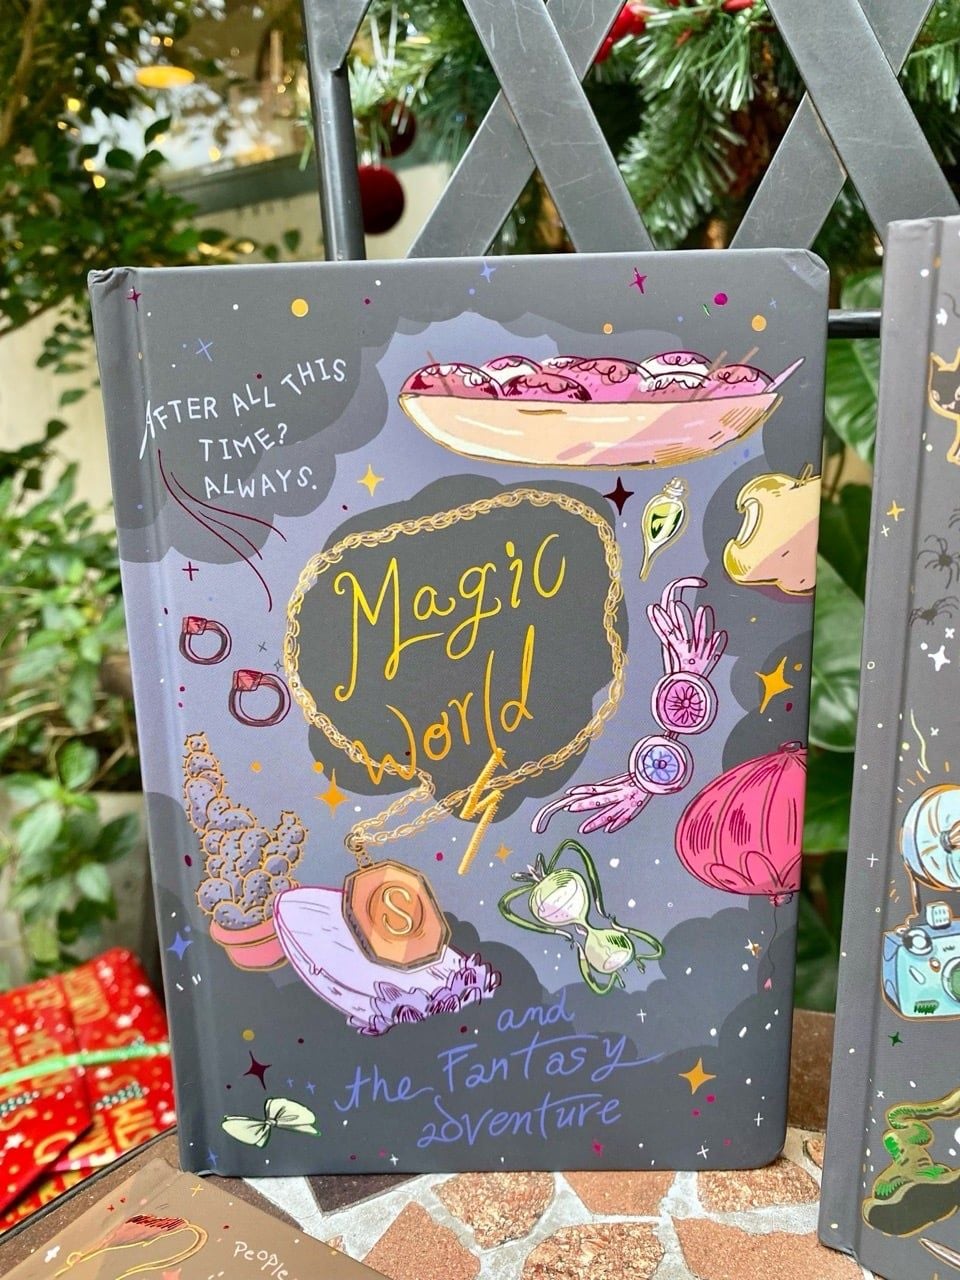 AFTER ALL THIS
TIME?
ALWAYS.
Magic
World
S
and
the Fantasy
adventure
PEOPLE